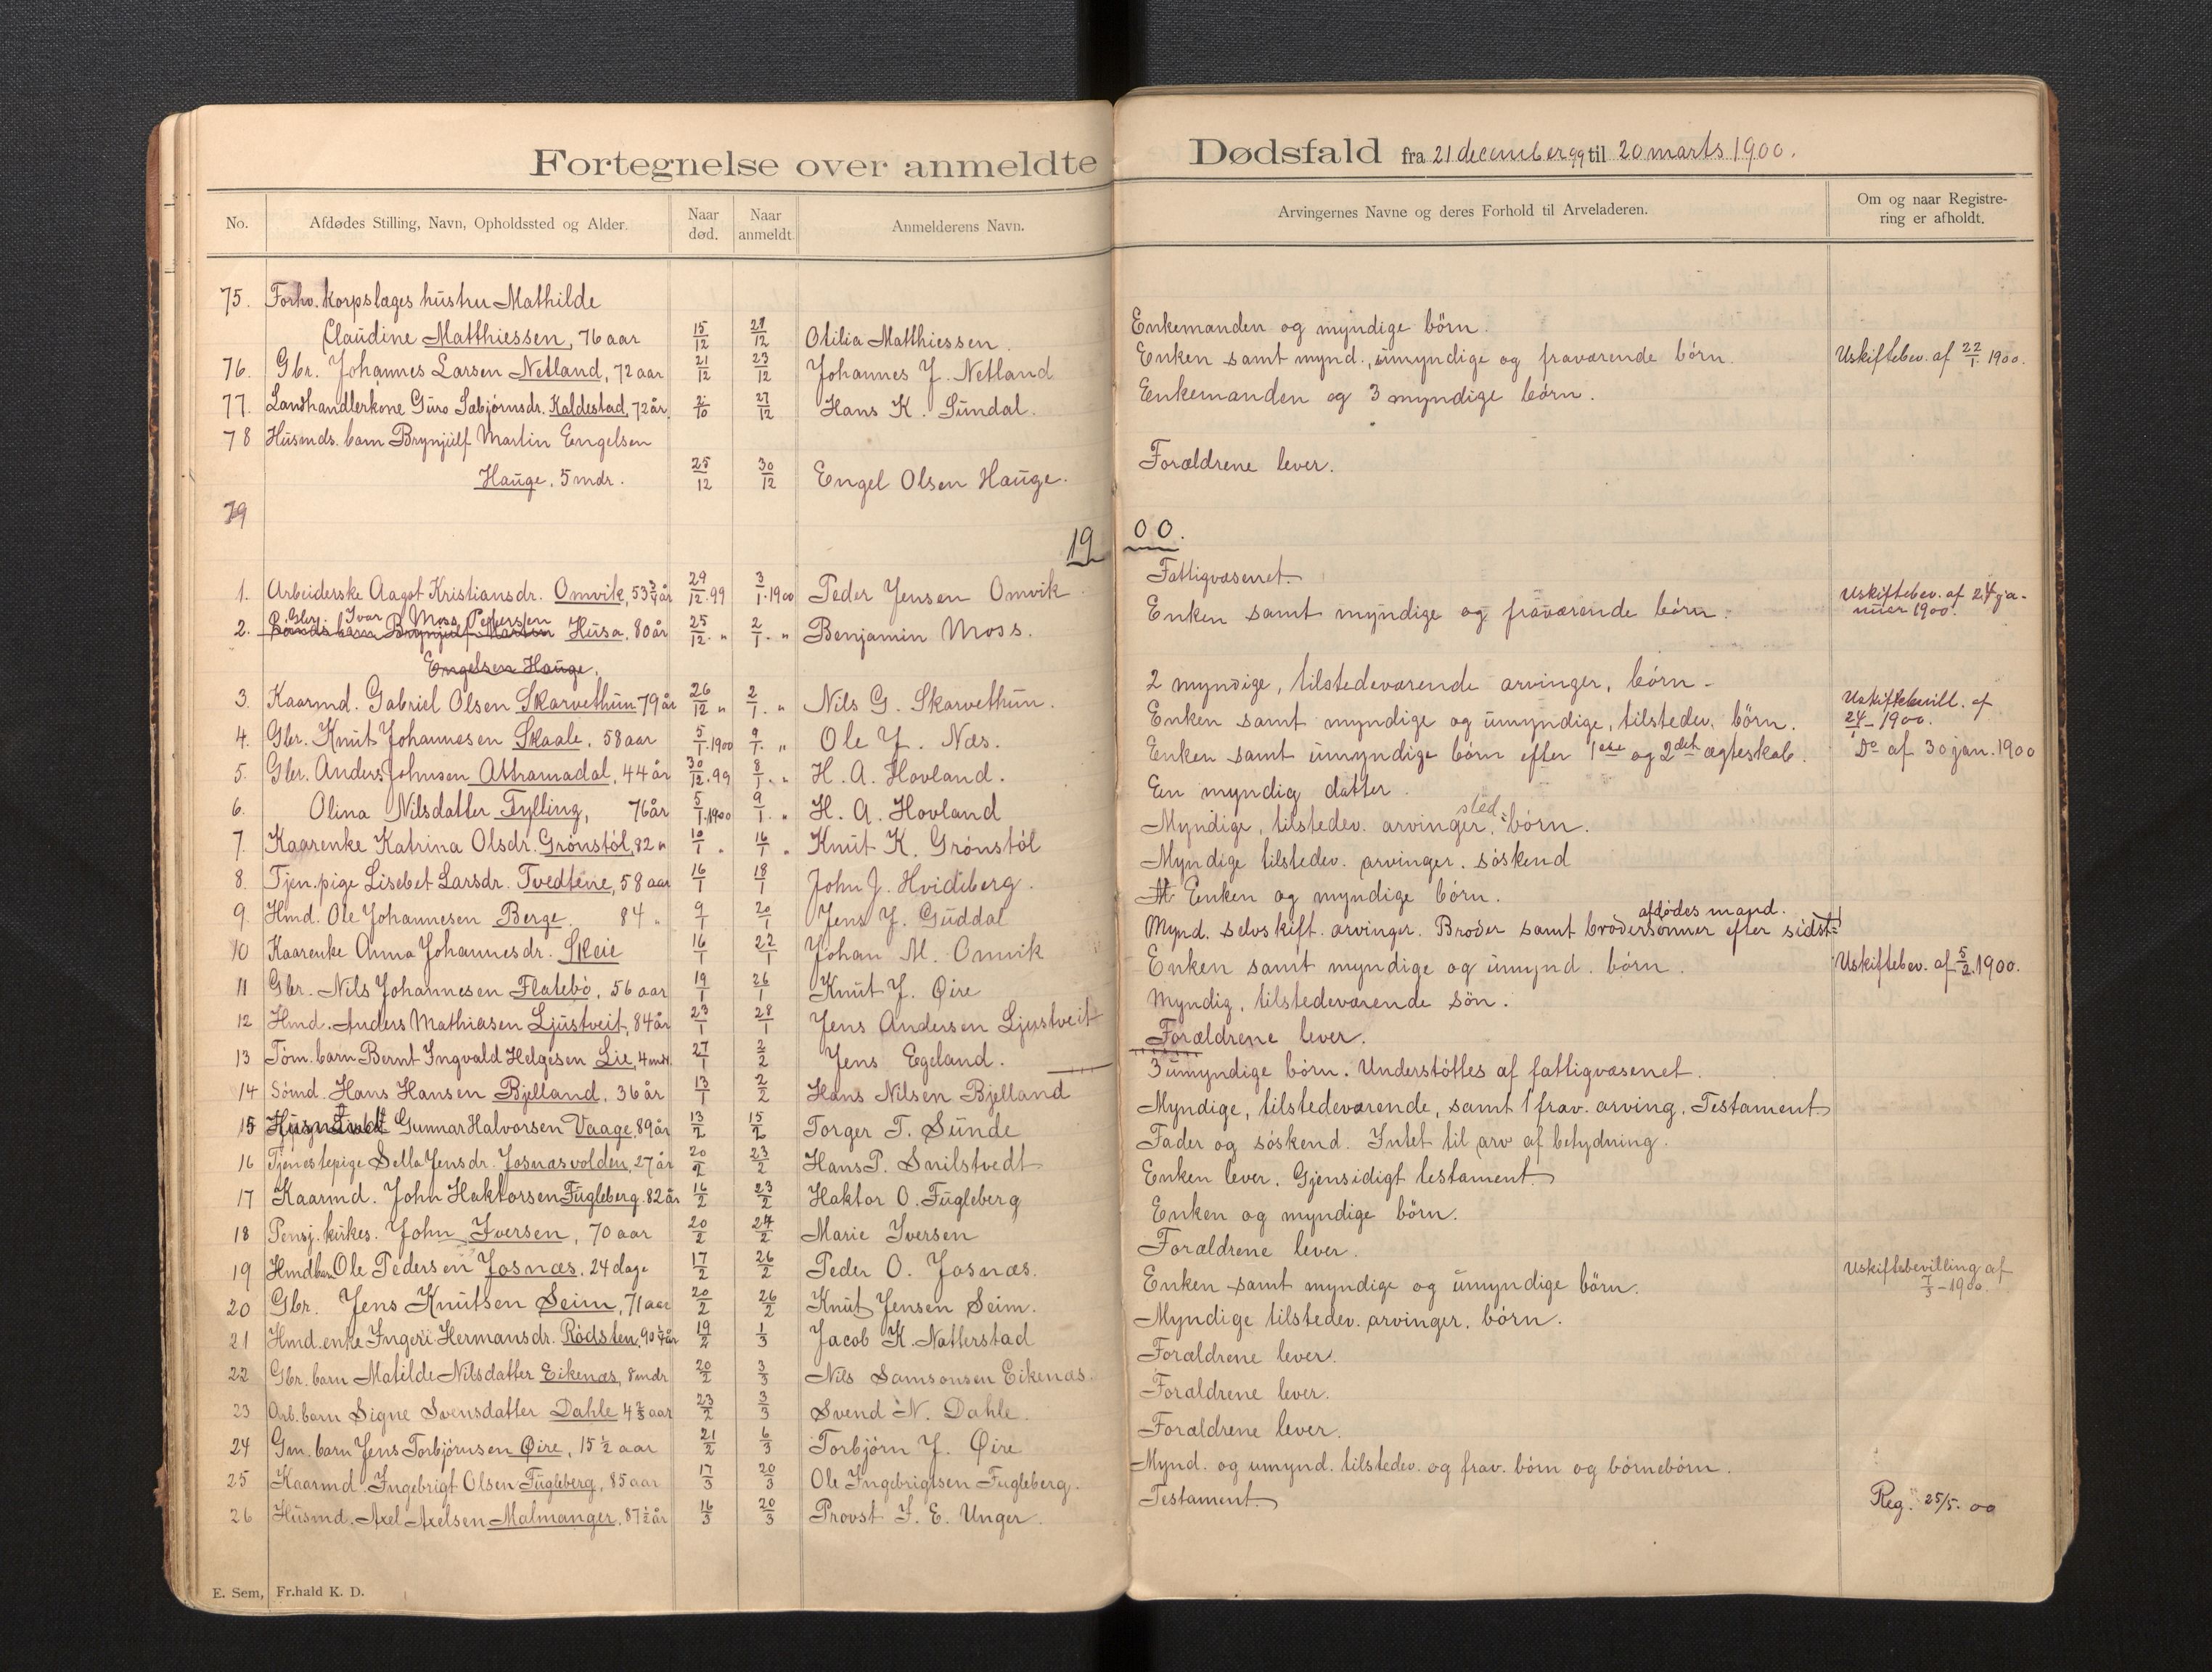 Fortegnelse over anmeldte Dødsfald fra 21 december 99 til 20 marts 1900.
No. Afdødes Stilling, Navn, Opholdssted og Alder. Naar død. Naar anmeldt. Anmelderens Navn. Arvingernes Navne og deres Forhold til Arveladeren. Om og naar Registrering er afholdt.
75. Forhv. korpslæges hustru Mathilde
Claudine Matthiessen, 76 aar 15/12 21/12 Otilia Matthiessen. Enkemanden og myndige børn.
76. Gbr. Johannes Larsen Netland, 72 aar 21/12 23/12 Johannes J. Netland Enken samt mynd., umyndige og fraværende børn. Uskiftebev. af 22/1 1900.
77. Landhandlerkone Guro Sæbjørnsdr. Kaldestad, 72 år. 2/10 27/12 Hans K. Sundal. Enkemanden og 3 myndige børn.
78 Husmds. barn Brynjulf Martin Engelsen
Hauge, 5 mdr. 25/12 30/12 Engel Olsen Hauge. Forældrene lever.
79
1900.
1. Arbeiderske Aagot Kristiansdr. Omvik, 53 3/4 år 29/12.99 3/1.1900 Peder Jensen Omvik Fattigvæsenet. Uskiftebev. af 24 ja-
nuar 1900.
Gbr. Ivar Moss Pedersen
2. Bonds barn Brynjulf Martin Husa, 80 år 25/12 " 2/1 " Benjamin Moss. Enken samt myndige og fraværende børn.
Engelsen Hauge.
3. Kaarmd. Gabriel Olsen Skarvethun 79 år 26/12 " 2/1 " Nils G. Skarvethun. 2 myndige, tilstedeværende arvinger, børn.
4. Gbr. Knut Johannesen Skaale, 58 aar 5/1.1900 9/1 " Ole J. Næs. Enken samt myndige og umyndige, tilstedev. børn. Uskiftebevill. af
24/1 - 1900.
5. Gbr. Anders Johnsen Attramadal, 44 år 30/12.99 8/1 " H. A. Hovland. Enken samt umyndige børn efter 1ste og 2det ægteskab. Do af 30 jan. 1900
6. Olina Nilsdatter Tylling, 76 år 5/1.1900 9/1 " H. A. Hovland En myndig datter.
7. Kaarenke Katrina Olsdr. Grønstøl, 82 " 10/1 " 16/1 " Knut K. Grønstøl Myndige, tilstedev. arvinger, sted-børn.
8. Tjen.pige Lisebet Larsdr. Tvedtene, 58 aar 16/1 18/1 John J. Hvideberg. Myndige tilstedev. arvinger. søskend
9. Hmd. Ole Johannesen Berge. 84 " 9/1 20/1 Jens J. Guddal M Enken og myndige børn.
10 Kaarenke Anna Johannesdr. Skeie 16/1 22/1 Johan M. Omvik Mynd. selvskift. arvinger. Broder samt brodersønner efter sidst- afdødes mand.
11 Gbr. Nils Johannesen Flatebø, 56 aar 19/1 26/1 Knut J. Øire Enken samt myndige og umynd. børn. Uskiftebev. af 5/2.1900.
12 Hmd. Anders Mathiasen Ljustveit, 84 år 23/1 28/1 Jens Andersen Ljustveit Myndig, tilstedeværende søn.
13 Tøm. barn Bernt Ingvald Helgesen Lie, 4 mdr. 27/1 2/2 Jens Egeland. Forældrene lever.
14 Sømd. Hans Hansen Bjelland, 36 år 13/1 2/2 Hans Nilsen Bjelland 3 umyndige børn. Understøttes af fattigvæsenet.
15 Gunnar Halvorsen Vaage, 89 år 13/2 15/2 Torger T. Sunde Myndige, tilstedeværende, samt 1 frav. arving. Testament
16 Tjenestepige Sella Jensdr. Josnæsvolden, 27 år 20/2 23/2 Hans P. Snilstvedt Fader og søskend. Intet til arv af betydning.
17 Kaarmd. John Haktorsen Fugleberg. 82 år 16/2 23/2 Haktor O. Fugleberg Enken lever. Gjensidigt testament.
18 Pensj. kirkes. John Iversen, 70 aar 20/2 24/2 Marie Iversen Enken og myndige børn.
19 Hmdbarn Ole Pedersen Josnæs. 24 dage 17/2 26/2 Peder O. Josnæs. Forældrene lever.
20 Gbr. Jens Knutsen Seim, 71 aar 20/2 26/2 Knut Jensen Seim. Enken samt myndige og umyndige børn. Uskiftebevilling af
7/3 - 1900.
21 Hmd.enke Ingeri Hermansdr. Rødsten, 90 1/4 år 19/2 1/3 Jacob K. Natterstad Myndige tilstedev. arvinger, børn.
22 Gbr. barn Matilde Nilsdatter Eikenæs, 8 mdr 20/2 3/3 Nils Samsonsen Eikenæs. Forældrene lever.
23 Arb. barn Signe Svensdatter Dahle 4 2/3 aar 23/2 3/3 Svend N. Dahle. Forældrene lever.
24 Gm. barn Jens Torbjørnsen Øire, 15 1/2 aar 21/2 6/3 Torbjørn J. Øire Forældrene lever.
25 Kaarmd. Ingebrigt Olsen Fugleberg, 85 aar 17/3 20/3 Ole Ingebrigtsen Fugleberg. Mynd. og umynd. tilstedev. og frav. børn og børnebørn.
26 Husmd. Axel Axelsen Malmanger, 87 1/2 år 16/3 20/3 Provst J. E. Unger. Testament Reg. 25/5. 00
E. Sem, Fr.hald K. D.